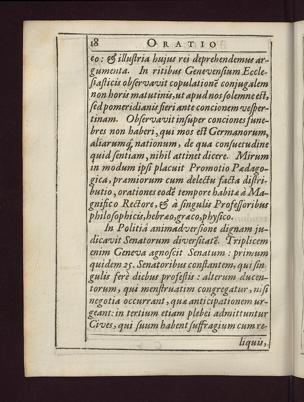 18 ORATIO
eo: & illustria hujus rei deprehendemus ar-
gumenta. In ritibus Genevensium Eccle-
siasticis observavit copulationē conjugalem
non horis matutinis, ut apud nos solemne est,
sed pomeridianis fieri ante concionem vesper-
tinam. Observavit insuper conciones fune-
bres non haberi, qui mos est Germanorum,
aliarumq; nationum, de qua consuetudine
quid sentiam, nihil attinet dicere. Mirum
in modum ipsi placuit Promotio Padago-
gica, præmiorum cum delectu facta distri-
butio, orationes eodē tempore habita à Ma-
gnifico Rectore, & à singulis Professoribus
philosophicis, hebræo, græco, physico.
In Politiâ animadversione dignam ju-
dicavit Senatorum diversitatē. Triplicem
enim Geneva agnoscit Senatum: primum
quidem 25. Senatoribus constantem, qui sin-
gulis ferè diebus profestis: alterum ducen-
torum, qui menstruatim congregatur, nisi
negotia occurrant, qua anticipationem ur-
geant: in tertium etiam plebei admittuntur
Cives, qui suum habent suffragium cum re-
liquis,